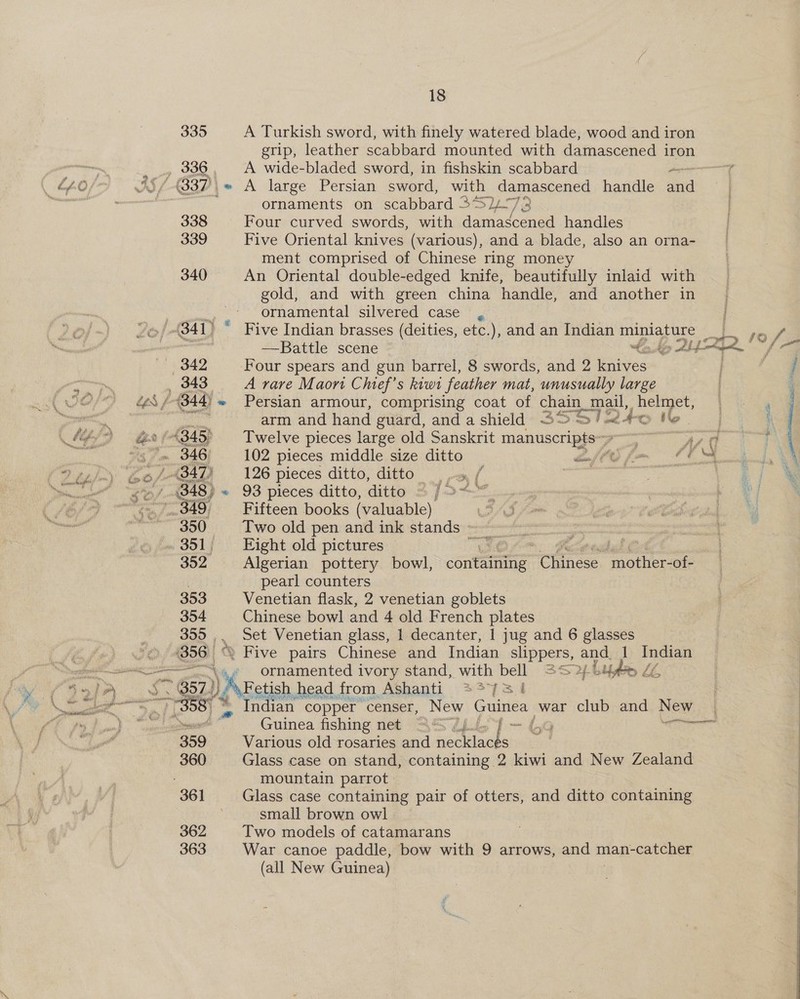 18
335 A Turkish sword, with finely watered blade, wood and iron
grip, leather scabbard mounted with damascened iron
336 A wide-bladed sword, in fishskin scabbard
337 A large Persian sword, with damascened handle and
ornaments on scabbard
338 Four curved swords, with damascened handles
339 Five Oriental knives (various), and a blade, also an orna-
ment comprised of Chinese ring money
340 An Oriental double-edged knife, beautifully inlaid with
gold, and with green china handle, and another in
ornamental silvered case
341 Five Indian brasses (deities, etc.), and an Indian miniature
—Battle scene
342 Four spears and gun barrel, 8 swords, and 2 knives
343 A rare Maori Chief's kiwi feather mat, unusually large
344 Persian armour, comprising coat of chain mail, helmet,
arm and hand guard, and a shield
345 Twelve pieces large old Sanskrit manuscripts
346 102 pieces middle size ditto
347 126 pieces ditto, ditto
348 93 pieces ditto, ditto
349 Fifteen books (valuable)
350 Two old pen and ink stands
351 Eight old pictures
352 Algerian pottery bowl, containing Chinese mother-of-
pearl counters
353 Venetian flask, 2 venetian goblets
354 Chinese bowl and 4 old French plates
355 Set Venetian glass, 1 decanter, 1 jug and 6 glasses
356 Five pairs Chinese and Indian slippers, and 1 Indian
ornamented ivory stand, with bell
357 Fetish head from Ashanti
358 Indian copper censer, New Guinea war club and New
Guinea fishing net
359 Various old rosaries and necklaces
360 Glass case on stand, containing 2 kiwi and New Zealand
mountain parrot
361 Glass case containing pair of otters, and ditto containing
small brown owl
362 Two models of catamarans
363 War canoe paddle, bow with 9 arrows, and man-catcher
(all New Guinea)